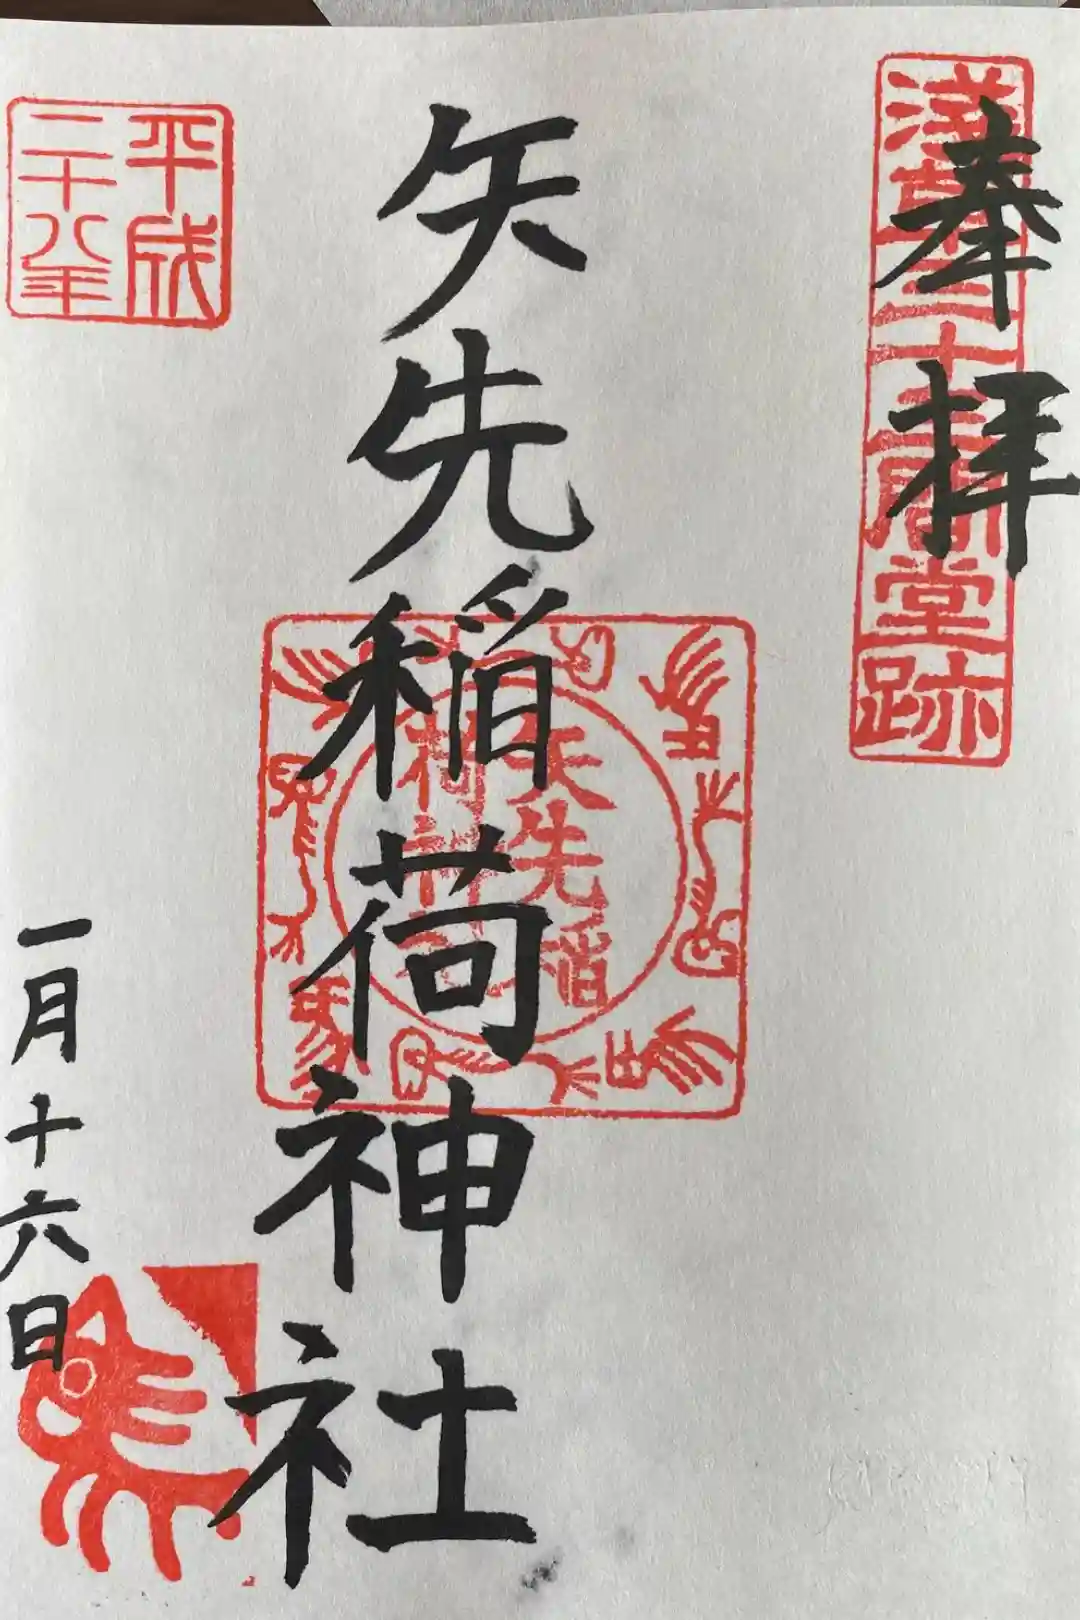 奉拝
淺草三十三間堂跡
矢先稲荷神社
矢先稲
荷神社
平成
二十八年
一月十六日